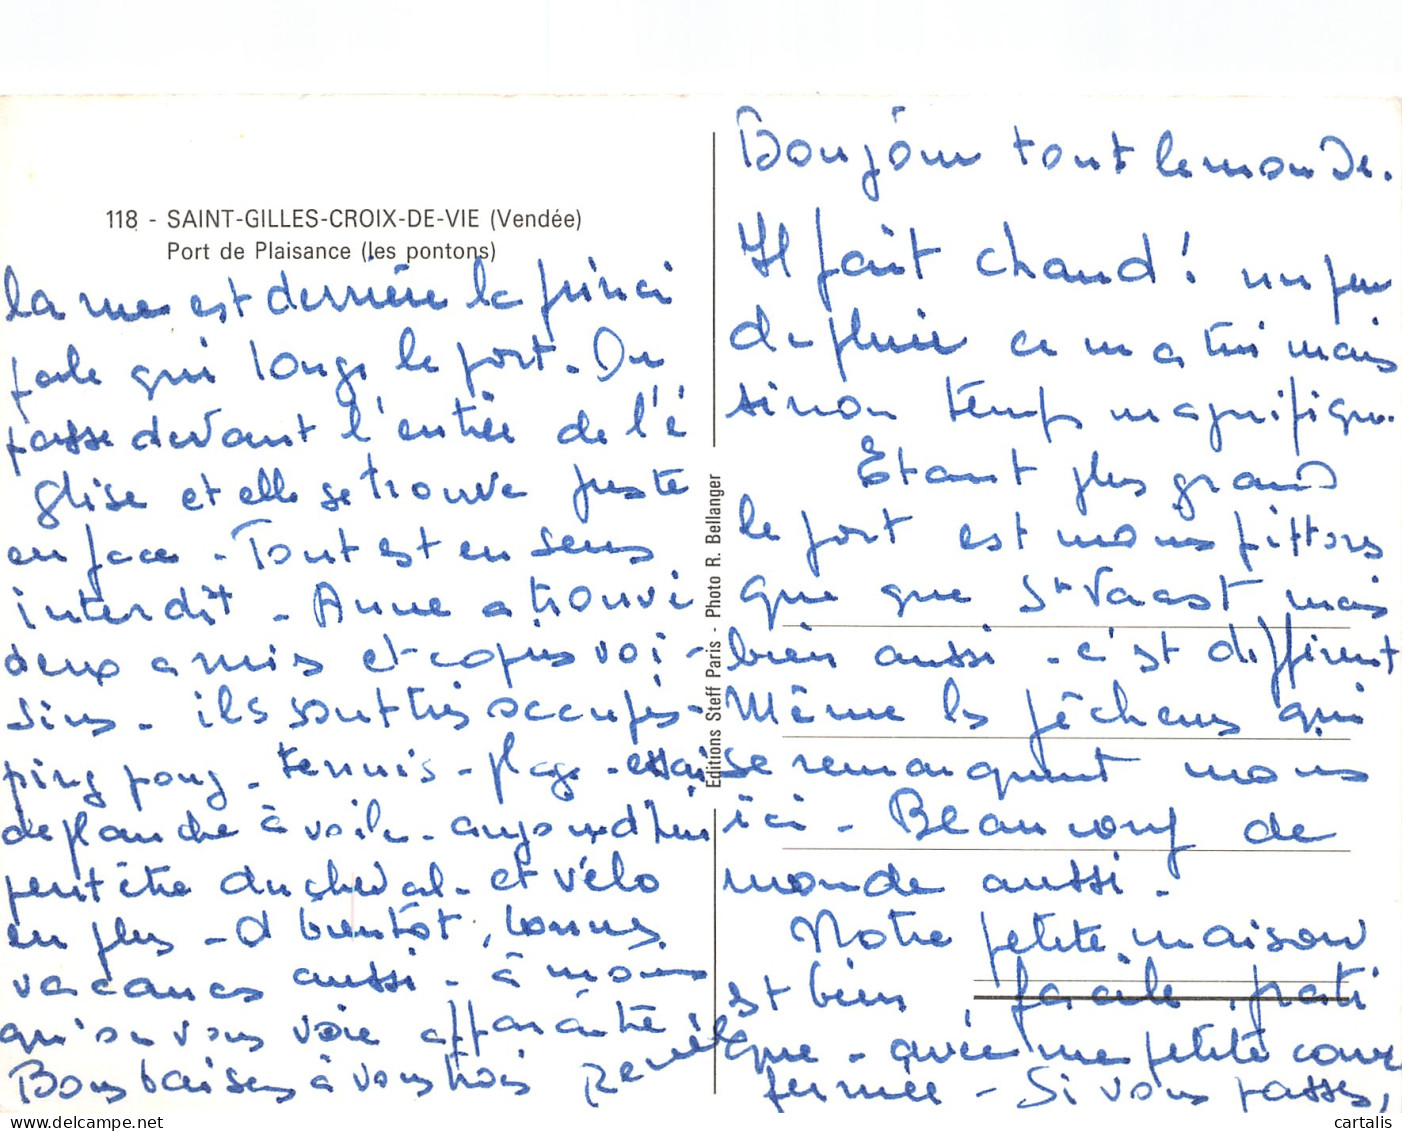 118 - SAINT-GILLES-CROIX-DE-VIE (Vendée)
Port de Plaisance (les pontons)
Bonjour tout le monde.
Il fait chaud ! un peu
de pluie ce matin mais
sinon temps magnifique.
Etant plus grand
le port est moins pittores
que que St Vaast mais
bien aussi - c'est différent
Même les pêcheurs qui
se remarquent moins
ici - Beaucoup de
monde aussi -
Notre petite maison
est bien, facile, prati
que - avec une petite cour
fermée - Si vous passez,
la rue est derrière la princi
pale qui longe le port - On
passe devant l'entrée de l'é
glise et elle se trouve juste
en face - Tout est en sens
interdit - Anne a trouvé
deux amis et copins voi-
sins - ils sont très occupés -
ping pong - tennis - plage - essais
de planche à voile - aujourd'hui
peut être du cheval - et vélo
en plus - A bientôt, bonnes
vacances aussi - à moins
qu'on vous voie apparaître
Bons baisers à vous trois
Editions Steff Paris - Photo R. Bellanger
cartalis